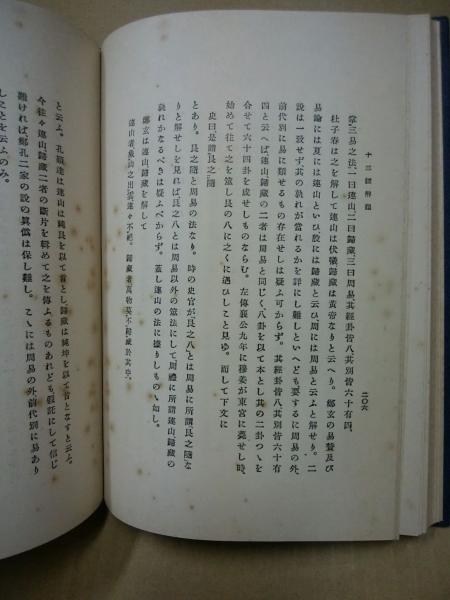 十三經解題
二〇六
掌三易之法、一曰連山、二曰歸藏、三曰周易、其經卦皆八、其別皆六十有四、
杜子春は之を解して連山は伏犧、歸藏は黃帝なりと云へり。鄭玄の易贊及び
易論には夏には連山といひ殷には歸藏と云ひ、周には周易と云ふと解せり。二
說は一致せず、其の孰れが當れるかを詳にし難しといへども、要するに周易の外、
前代別に易に類せるもの存在せしは疑ふ可からず。其經卦皆八、其別皆六十有
四と云へば、連山歸藏の二者は周易と同じく八卦を以て本とし其の二卦つゝを
合せて六十四卦を成せしものならむ。左傳襄公九年に穆姜が東宮に薨せし時、
始めて往て之を筮し艮の八に之くに遇ひしこと見ゆ。而して下文に
史曰是謂艮之隨
とあり。艮之隨と周易の法なり。時の史官が「艮之八」とは周易に所謂「艮之隨」な
りと解せしを見れば、艮之八とは周易以外の筮法にして周禮に所謂連山歸藏の
孰れかなるべきは疑ふべからず。蓋し連山の法に據りしものゝ如し。
鄭玄は連山歸藏を解して
連山者象山之出雲連々不絕。歸藏者萬物莫不歸藏於其中。
と云ふ。孔穎達は連山は純艮を以て首とし歸藏は純坤を以て首となすと云ふ。
今往々連山歸藏二者の斷片を輯めて之を傳ふるものあれども、假託にして信じ
難ければ鄭孔二家の說の眞僞は保し難し。こゝには周易の外、前代別に易あり
しことを云ふのみ。